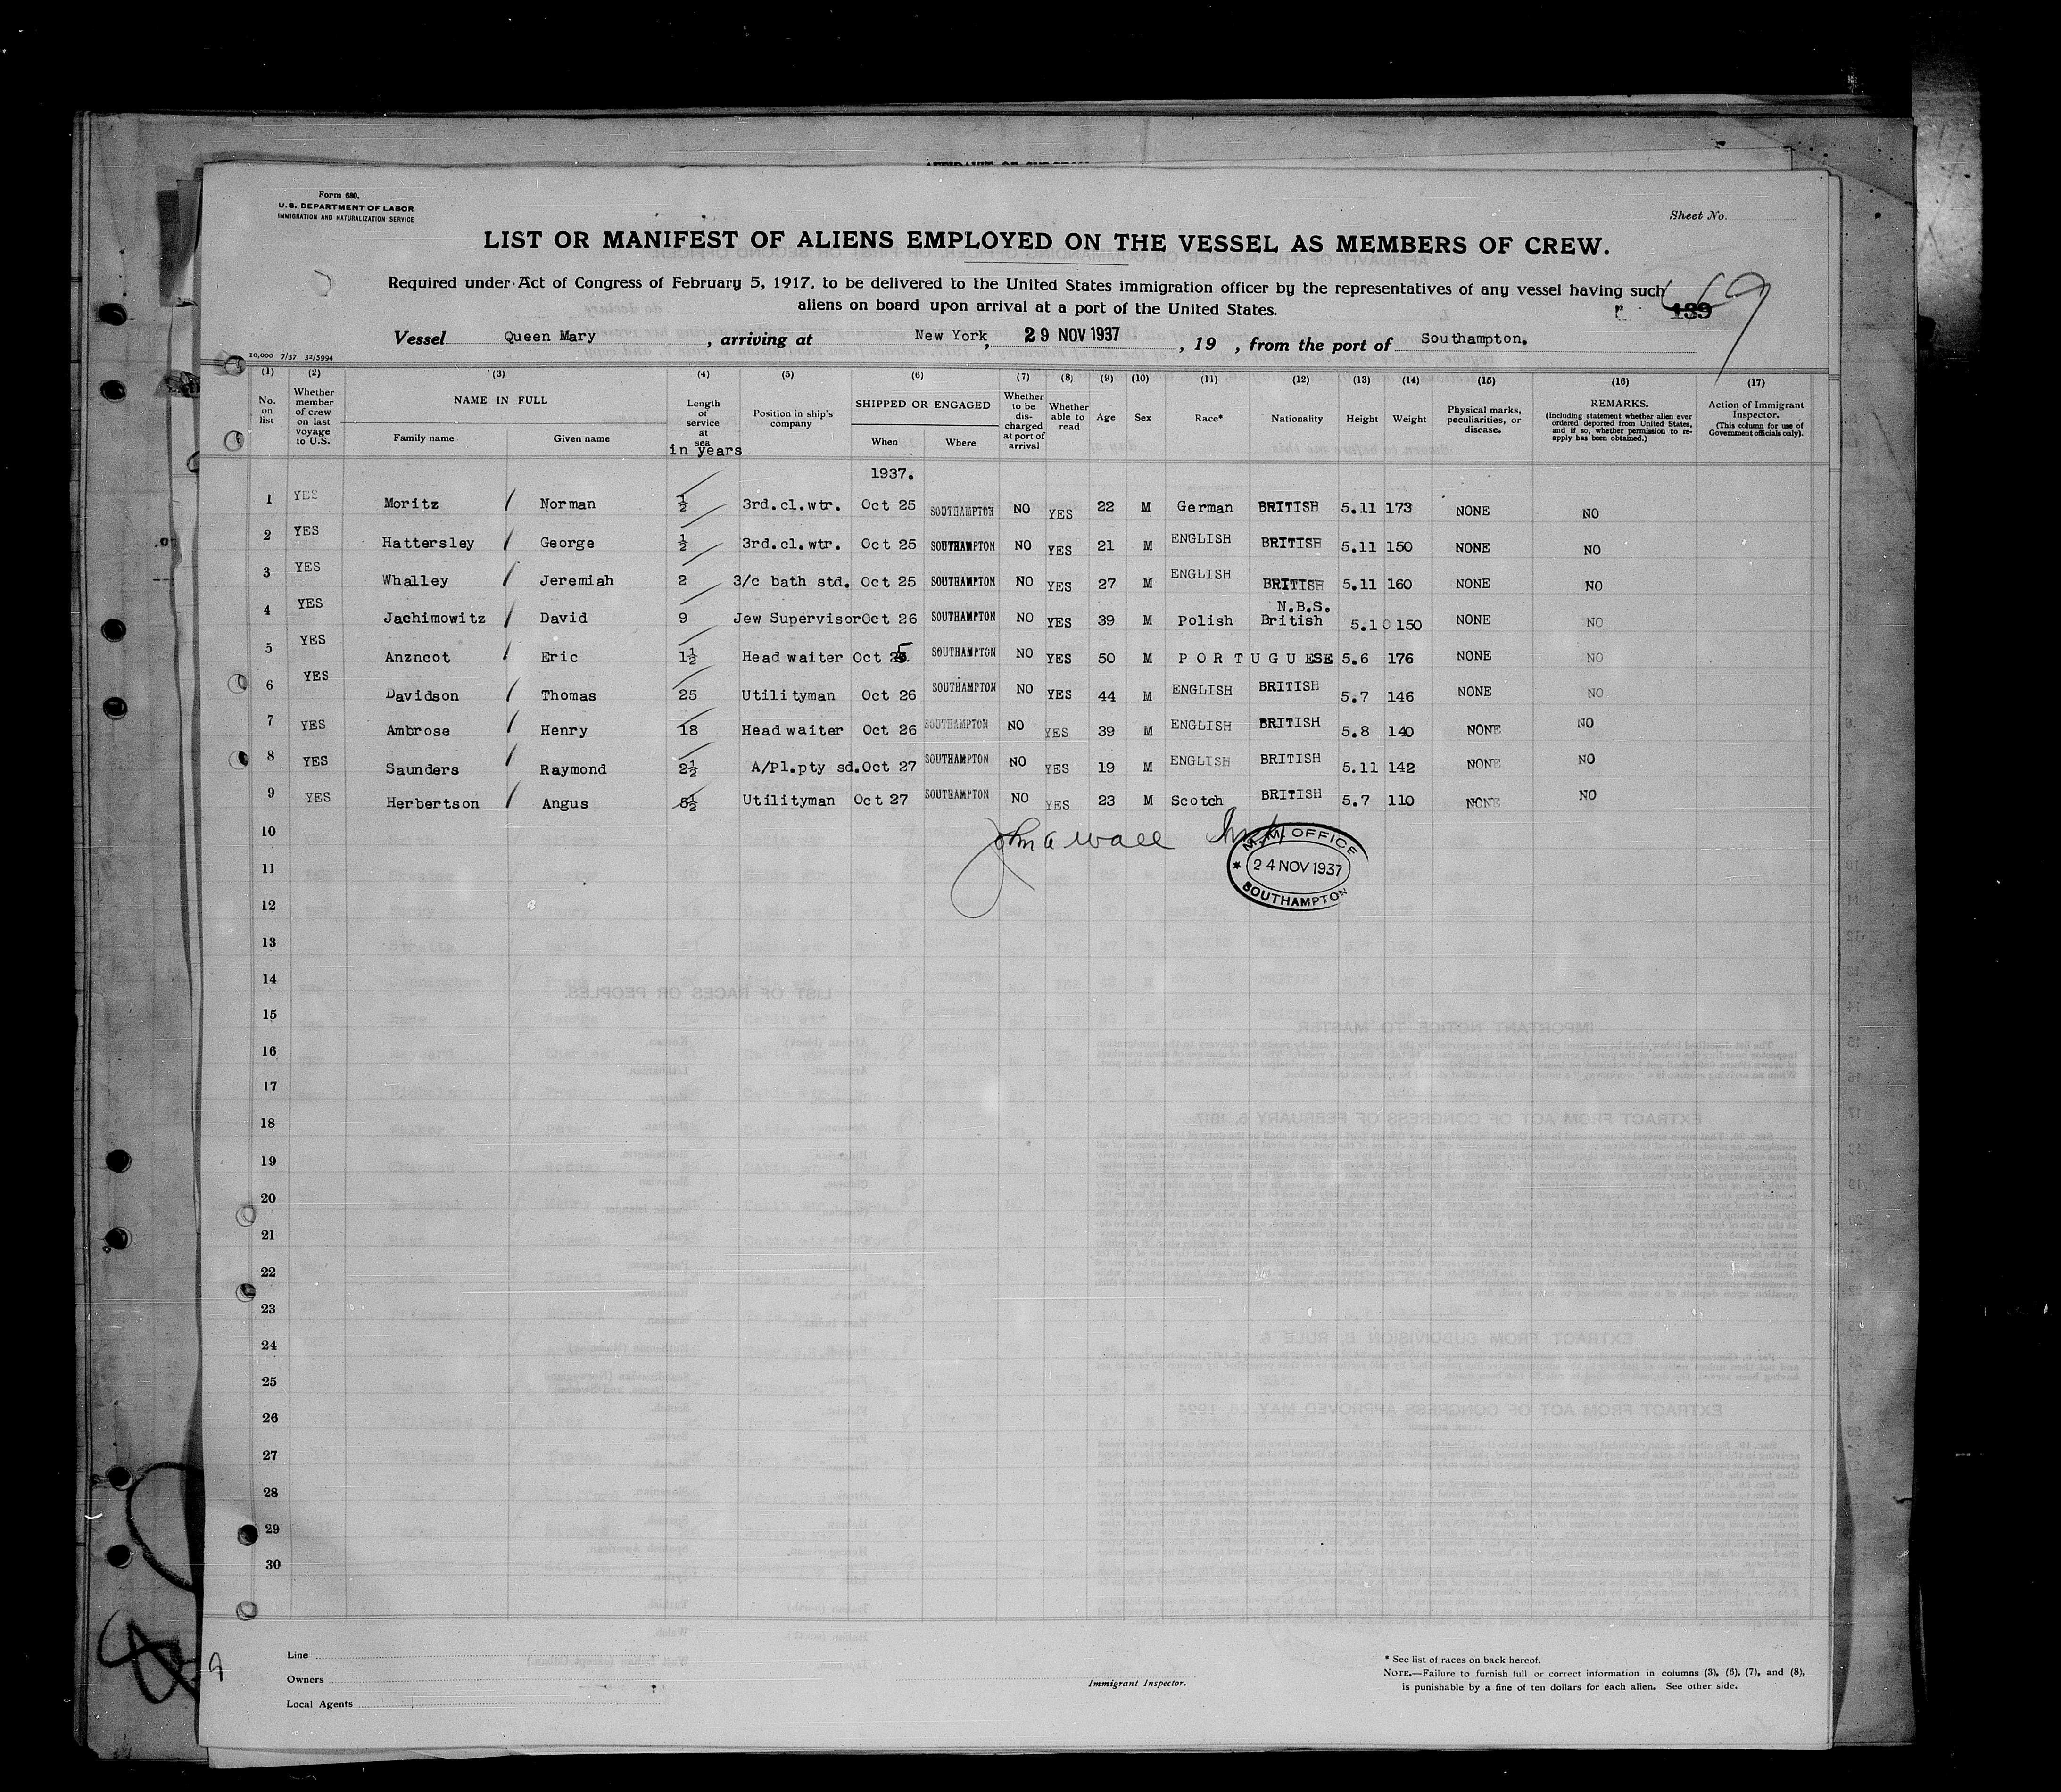 Form 680.
U.S. DEPARTMENT OF LABOR
IMMIGRATION AND NATURALIZATION SERVICE
Sheet No.
LIST OR MANIFEST OF ALIENS EMPLOYED ON THE VESSEL AS MEMBERS OF CREW.
Required under Act of Congress of February 5, 1917, to be delivered to the United States immigration officer by the representatives of any vessel having such
aliens on board upon arrival at a port of the United States.
139
69
Vessel Queen Mary, arriving at New York, 29 NOV 1937, 19 , from the port of Southampton.
10,000 7/37 32/5994
(1) (2) (3) (4) (5) (6) (7) (8) (9) (10) (11) (12) (13) (14) (15) (16) (17)
No. on list
Whether member of crew on last voyage to U.S.
NAME IN FULL
Family name Given name
Length of service at sea
in years
Position in ship's company
SHIPPED OR ENGAGED
When Where
Whether to be discharged at port of arrival
Whether able to read
Age Sex Race* Nationality Height Weight
Physical marks, peculiarities, or disease.
REMARKS.
(Including statement whether alien ever ordered deported from United States, and if so, whether permission to re-apply has been obtained.)
Action of Immigrant Inspector.
(This column for use of Government officials only).
1937.
1 YES Moritz Norman ½ 3rd.cl.wtr. Oct 25 SOUTHAMPTON NO YES 22 M German BRITISH 5.11 173 NONE NO
2 YES Hattersley George ½ 3rd.cl.wtr. Oct 25 SOUTHAMPTON NO YES 21 M ENGLISH BRITISH 5.11 150 NONE NO
3 YES Whalley Jeremiah 2 3/c bath std. Oct 25 SOUTHAMPTON NO YES 27 M ENGLISH BRITISH 5.11 160 NONE NO
N.B.S.
4 YES Jachimowitz David 9 Jew Supervisor Oct 26 SOUTHAMPTON NO YES 39 M Polish British 5.10 150 NONE NO
5 YES Anzncot Eric 1½ Head waiter Oct 25 SOUTHAMPTON NO YES 50 M PORTUGUESE 5.6 176 NONE NO
6 YES Davidson Thomas 25 Utilityman Oct 26 SOUTHAMPTON NO YES 44 M ENGLISH BRITISH 5.7 146 NONE NO
7 YES Ambrose Henry 18 Head waiter Oct 26 SOUTHAMPTON NO YES 39 M ENGLISH BRITISH 5.8 140 NONE NO
8 YES Saunders Raymond 2½ A/Pl.pty sd. Oct 27 SOUTHAMPTON NO YES 19 M ENGLISH BRITISH 5.11 142 NONE NO
9 YES Herbertson Angus 5½ Utilityman Oct 27 SOUTHAMPTON NO YES 23 M Scotch BRITISH 5.7 110 NONE NO
10
M.M. OFFICE
24 NOV 1937
SOUTHAMPTON
11
12
13
14
15
16
17
18
19
20
21
22
23
24
25
26
27
28
29
30
Line
Owners
Local Agents
Immigrant Inspector.
* See list of races on back hereof.
NOTE.—Failure to furnish full or correct information in columns (3), (6), (7), and (8),
is punishable by a fine of ten dollars for each alien. See other side.